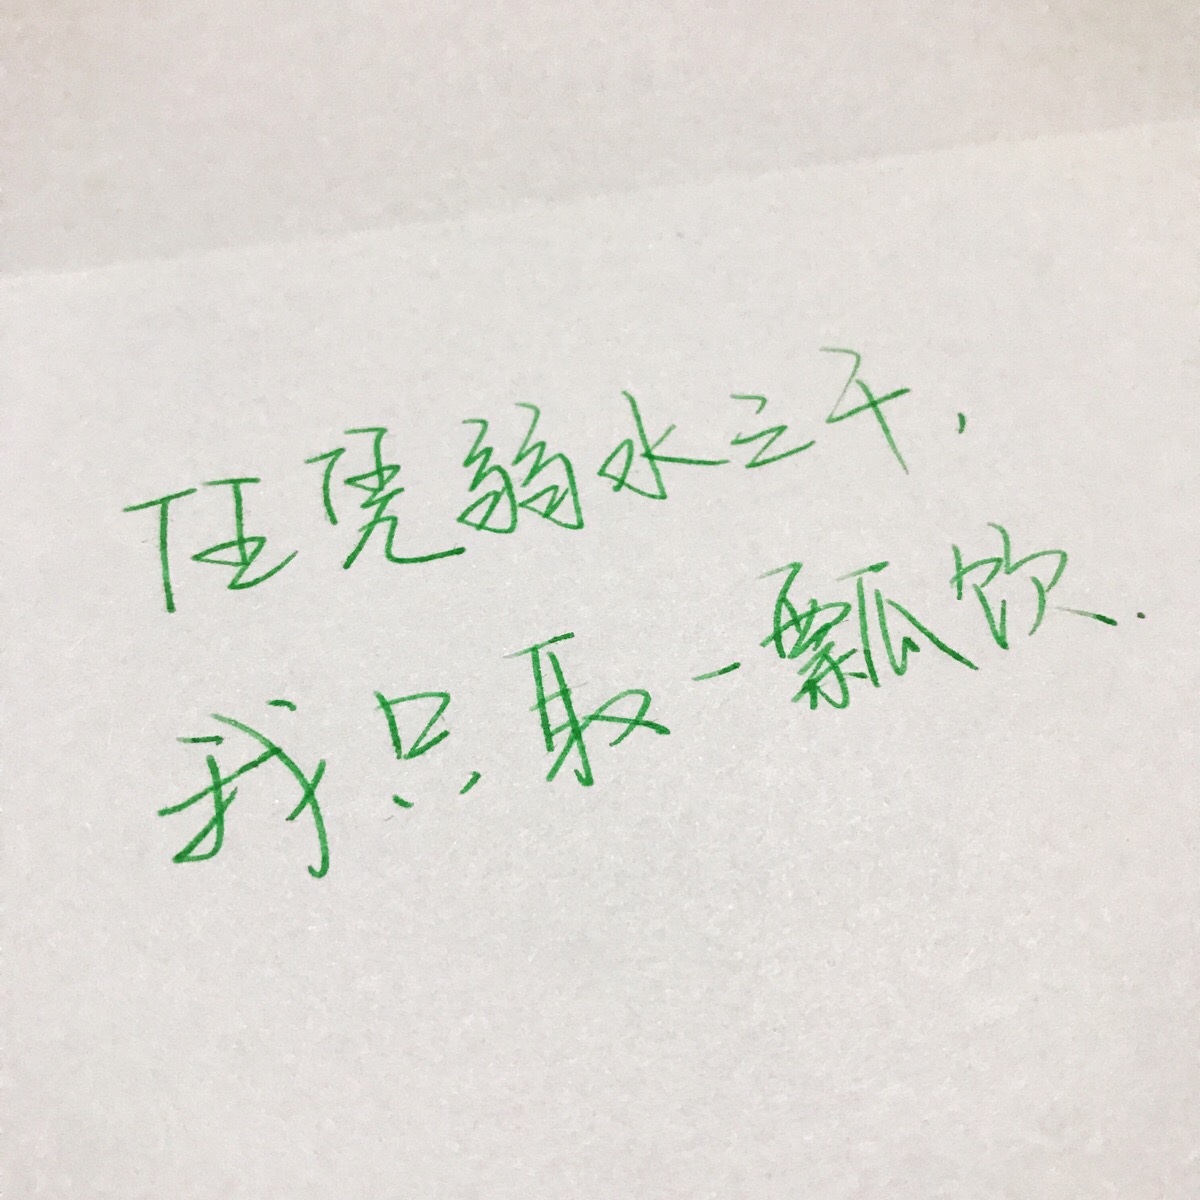 任凭弱水三千,
我只取一瓢饮.